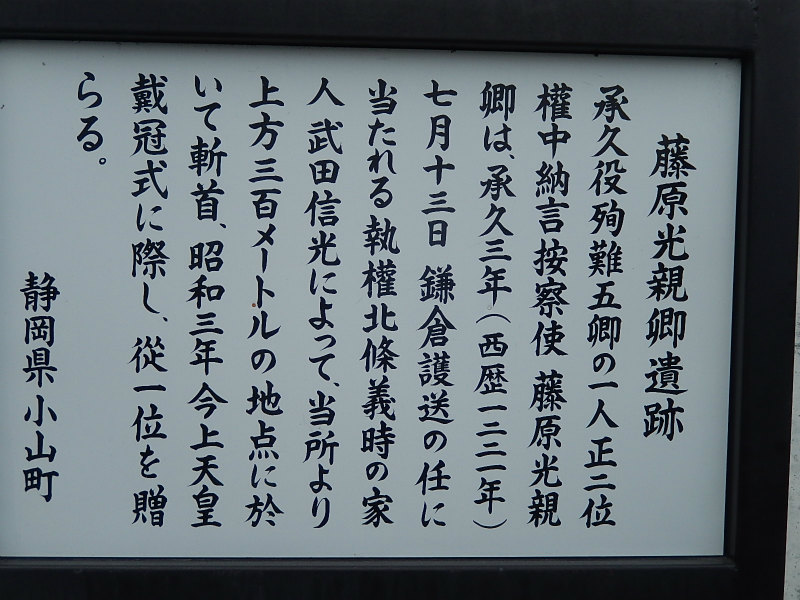 藤原光親卿遺跡
承久役殉難五卿の一人正二位
權中納言按察使 藤原光親
卿は、承久三年(西歴一二二一年)
七月十三日 鎌倉護送の任に
当たれる執權北條義時の家
人 武田信光によって、当所より
上方三百メートルの地点に於
いて斬首、昭和三年今上天皇
戴冠式に際し、從一位を贈
らる。
静岡県小山町